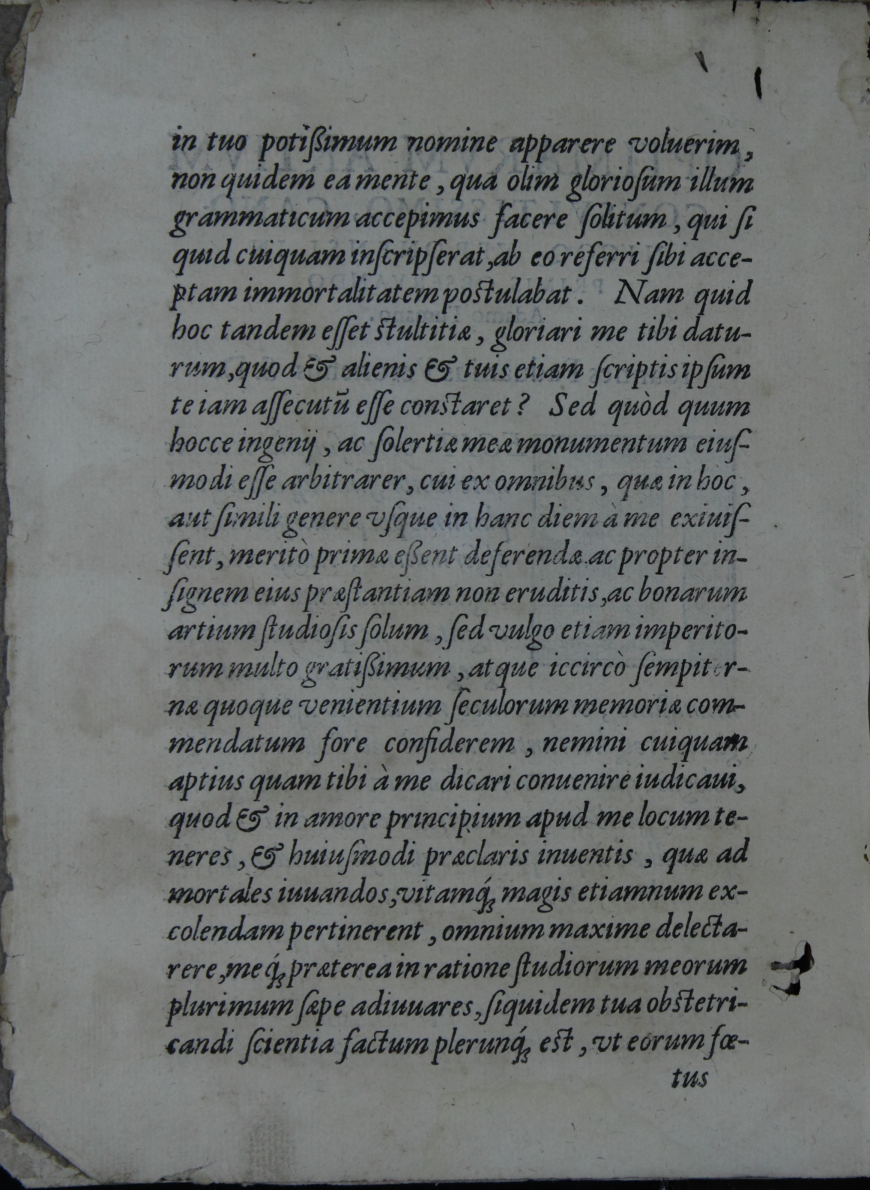 in tuo potißimum nomine apparere voluerim,
non quidem ea mente, qua olim glorioſum illum
grammaticum accepimus facere ſolitum, qui ſi
quid cuiquam inſcripſerat, ab eo referri ſibi acce-
ptam immortalitatem poſtulabat. Nam quid
hoc tandem eſſet ſtultitiæ, gloriari me tibi datu-
rum, quod & alienis & tuis etiam ſcriptis ipſum
te iam aſſecutū eſſe conſtaret? Sed quòd quum
hocce ingenij, ac ſolertiæ meæ monumentum eiuſ-
modi eſſe arbitrarer, cui ex omnibus, quæ in hoc,
aut ſimili genere vſque in hanc diem à me exiuiſ-
ſent, meritò primæ eßent deferendæ ac propter in-
ſignem eius præſtantiam non eruditis, ac bonarum
artium ſtudioſis ſolum, ſed vulgo etiam imperito-
rum multo gratißimum, atque iccircò ſempiter-
næ quoque venientium ſeculorum memoriæ com-
mendatum fore confiderem, nemini cuiquam
aptius quam tibi à me dicari conuenire iudicaui,
quod & in amore principium apud me locum te-
neres, & huiuſmodi præclaris inuentis, quæ ad
mortales iuuandos, vitamq́ꝫ magis etiamnum ex-
colendam pertinerent, omnium maxime delecta-
rere, meq́ꝫ præterea in ratione ſtudiorum meorum
plurimum ſæpe adiuuares, ſiquidem tua obſtetri-
candi ſcientia factum plerunq́ꝫ eſt, vt eorum fœ-
tus